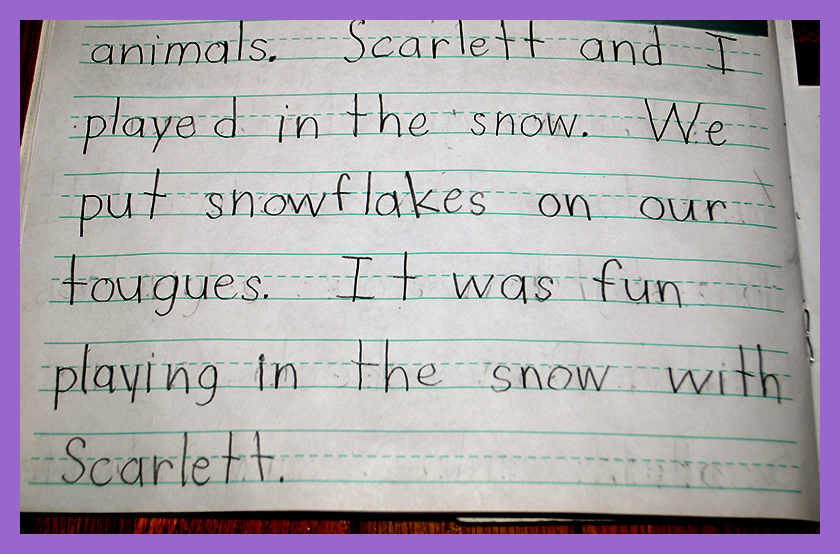 animals. Scarlett and I
played in the snow. We
put snowflakes on our
tougues. It was fun
playing in the snow with
Scarlett.